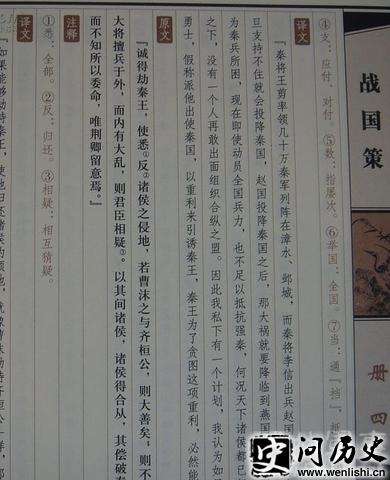 战国策
册四
④支:应付、对付。⑤数:指屡次。⑥举国:全国。⑦当:通“挡”,
译文
“秦将王翦率领几十万秦军列阵在漳水、邺城,而秦将李信出兵赵国
旦支持不住就会投降秦国,赵国投降秦国之后,那大祸就要降临到燕国
为秦兵所困,现在即使动员全国兵力,也不足以抵抗强秦,何况天下诸侯都已
之下,没有一个人再敢出面组织合纵之盟。因此我私下有一个计划,我认为如
勇士,假称派他出使秦国,以重利来引诱秦王,秦王为了贪图这项重利,必然能
原文
“诚得劫秦王,使悉①反②诸侯之侵地,若曹沫之与齐桓公,则大善矣;则不
大将擅兵于外,而内有大乱,则君臣相疑③。以其间诸侯,诸侯得合从,其偿破
而不知所以委命,唯荆卿留意焉。”
注释
①悉:全部。②反:归还。③相疑:相互猜疑。
译文
“如果能够劫持秦王,使他归还诸侯的领地,就像曹沫劫持齐桓公一样,那
史问历史
www.wenlishi.cn